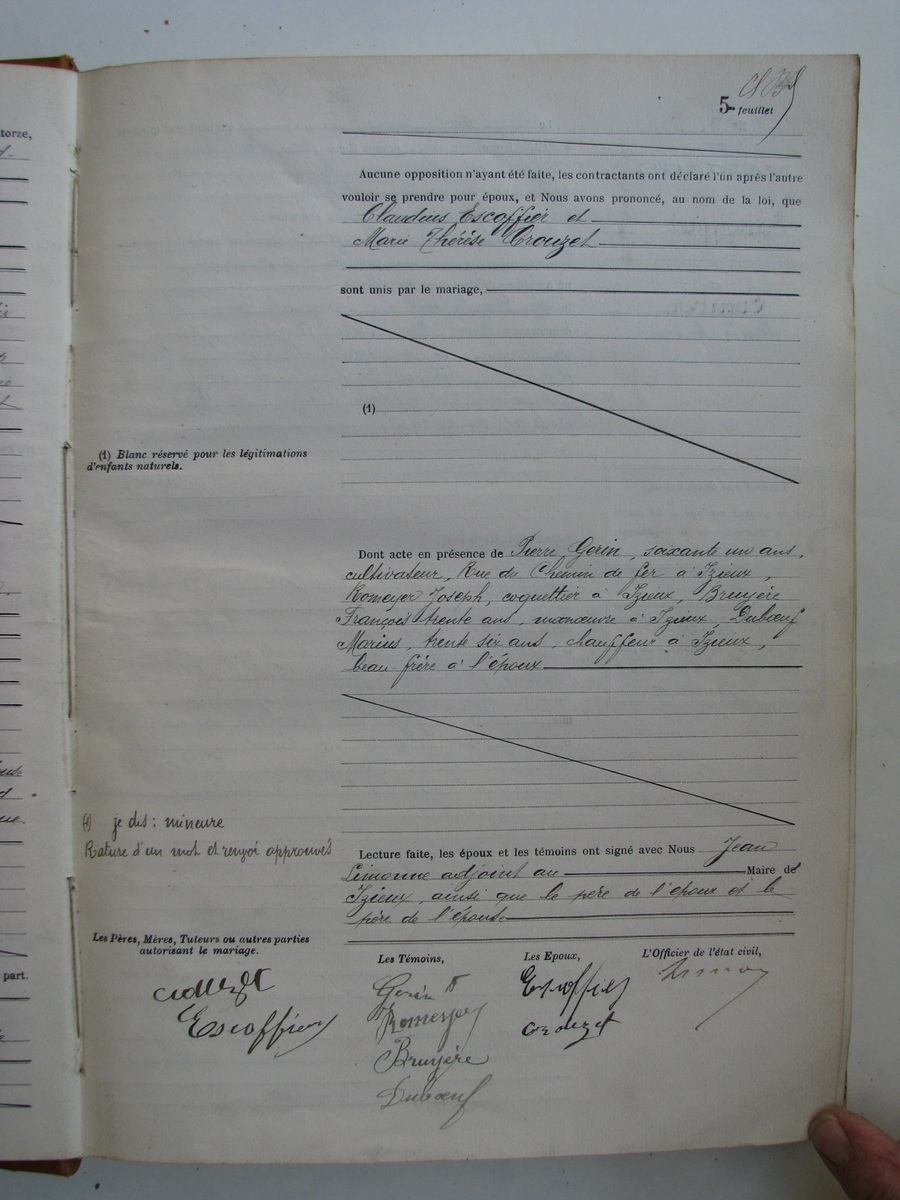 torze,
5e feuillet
Aucune opposition n'ayant été faite, les contractants ont déclaré l'un après l'autre
vouloir se prendre pour époux, et Nous avons prononcé, au nom de la loi, que
Claudius Escoffier et
Marie Thérèse Crouzet
sont unis par le mariage,
(1)
(1) Blanc réservé pour les légitimations
d'enfants naturels.
Dont acte en présence de Pierre Gerin, soixante un ans,
cultivateur, Rue du Chemin de fer à Izieux,
Romeyer Joseph, coquettier à Izieux, Bruyère
François trente ans, manœuvre à Izieux, Dubœuf
Marius, trente six ans, chauffeur à Izieux,
beau-frère à l'époux
je dis : mineure
Rature d'un mot et renvoi approuvés
Lecture faite, les époux et les témoins ont signé avec Nous Jean
Limonne adjoint au Maire de
Izieux, ainsi que le père de l'époux et le
père de l'épouse
part.
Les Pères, Mères, Tuteurs ou autres parties
autorisant le mariage.
Les Témoins,
Les Epoux,
L'Officier de l'état civil,
Crouzet
Escoffier
Gerin P
Romeyer
Bruyère
Dubœuf
Escoffier
Crouzet